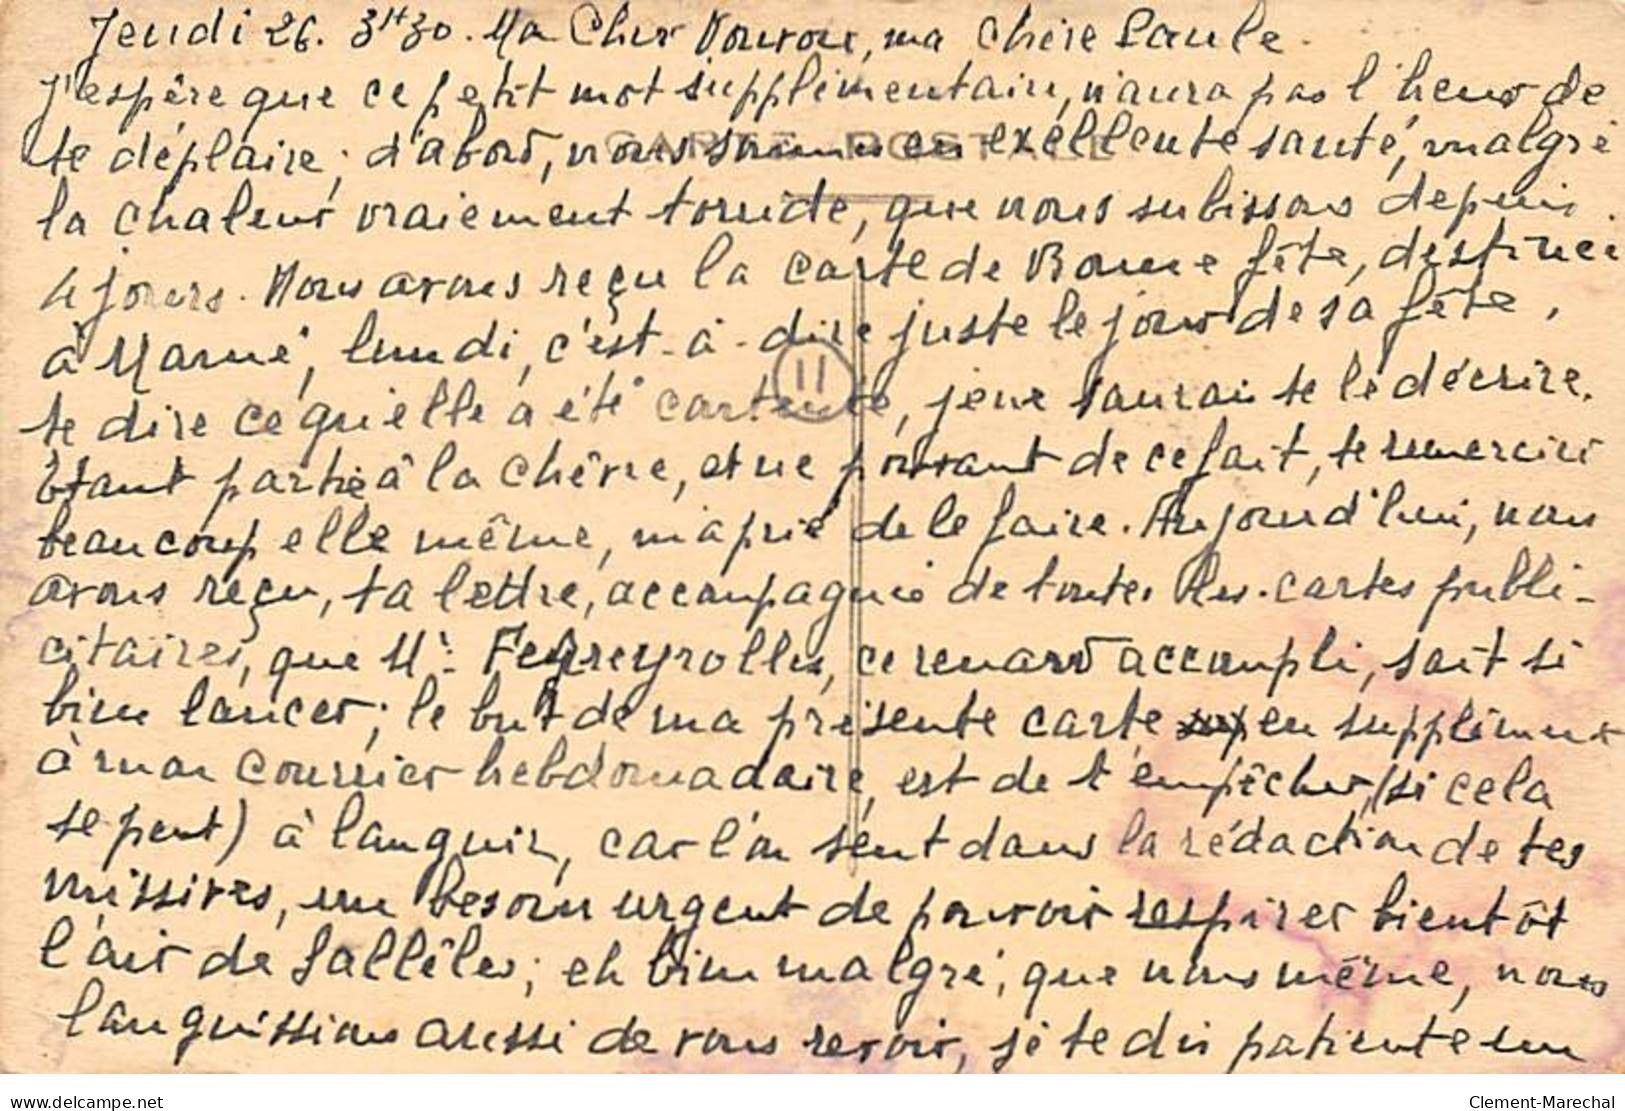 Jeudi 26. 3H30. Ma Cher Nounou, ma chère Paule.
J'espère que ce petit mot supplémentaire, n'aura pas l'heur de
te déplaire; d'abord, nous sommes en exellente santé, malgré
CARTE POSTALE
la chaleur vraiement torride, que nous subissons depuis
4 jours. Nous avons reçu la carte de Bonne fête, destinée
à Mamé, lundi, c'est-à-dire juste le jour de sa fête,
11
te dire ce qu'elle a été contente, je ne saurais te le décrire.
Etant partie à la chêvre, et ne pouvant de ce fait, te remercier
beaucoup elle même, m'a prié de le faire. Aujourd'hui, nous
avons reçu, ta lettre, accompagnée de toutes les cartes publi-
citaires, que Mr: Feyreyrolles, ce renard accompli, sait si
bien lancer; le but de ma présente carte en supplément
à mon courrier hebdomadaire, est de t'empêcher, (si cela
se peut) à languir, car l'on sent dans la rédaction de tes
missives, un besoin urgent de pouvoir respirer bientôt
l'air de Sallèles; eh bien malgré, que nous même, nous
languissions aussi de vous revoir, je te dis patiente un
delcampe.net
Clement-Marechal